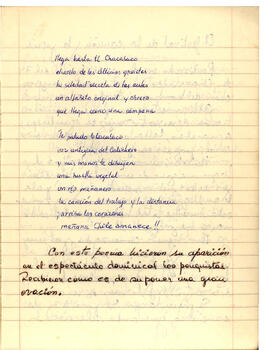 Llega hasta tí Chacabuco
el verde de los últimos
tu soledad secreta de las aulas
un alfabeto original y obrero
que llega como una campana
Tu puludo blanulaco
voz antigua del Calichero
y mis manos te dibujan
una huella vegetal
un río mañanero
la canción del trabajo y la distancia
¡arriba los corazones
mañana Chile amanece!!
Con este poema hicieron su aparición
en el espectáculo dominical los ponquistas.
Recibieron como es de suponer una gran
ovación.